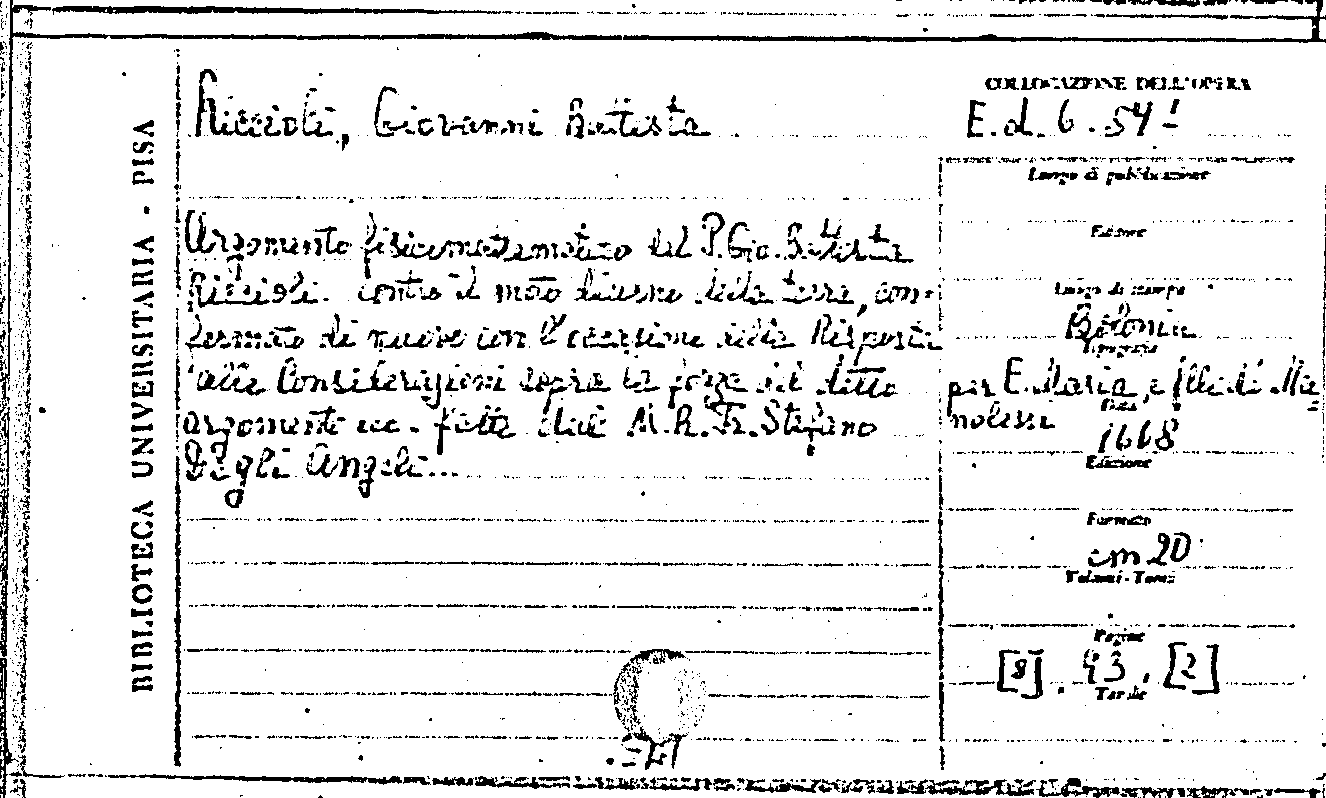 BIBLIOTECA UNIVERSITARIA - PISA
Riccioli, Giovanni Battista
Argomento fisicomatematico del P. Gio. Battista
Riccioli contro il moto diurno della terra, con-
fermato di nuovo con l'occasione della Risposta
alle Considerazioni sopra la forza del detto
argomento ecc. fatte dal M.R. Fr. Stefano
Degli Angeli...
COLLOCAZIONE DELL'OPERA
E. d. 6. 54
Luogo di pubblicazione
Editore
Luogo di stampa
Bolonia
Tipografia
per E. Maria, e f.lli di Ma
nolessi
Data
1668
Edizione
Formato
cm 20
Volumi - Tomi
Pagine
[8]. 93. [2]
Tavole